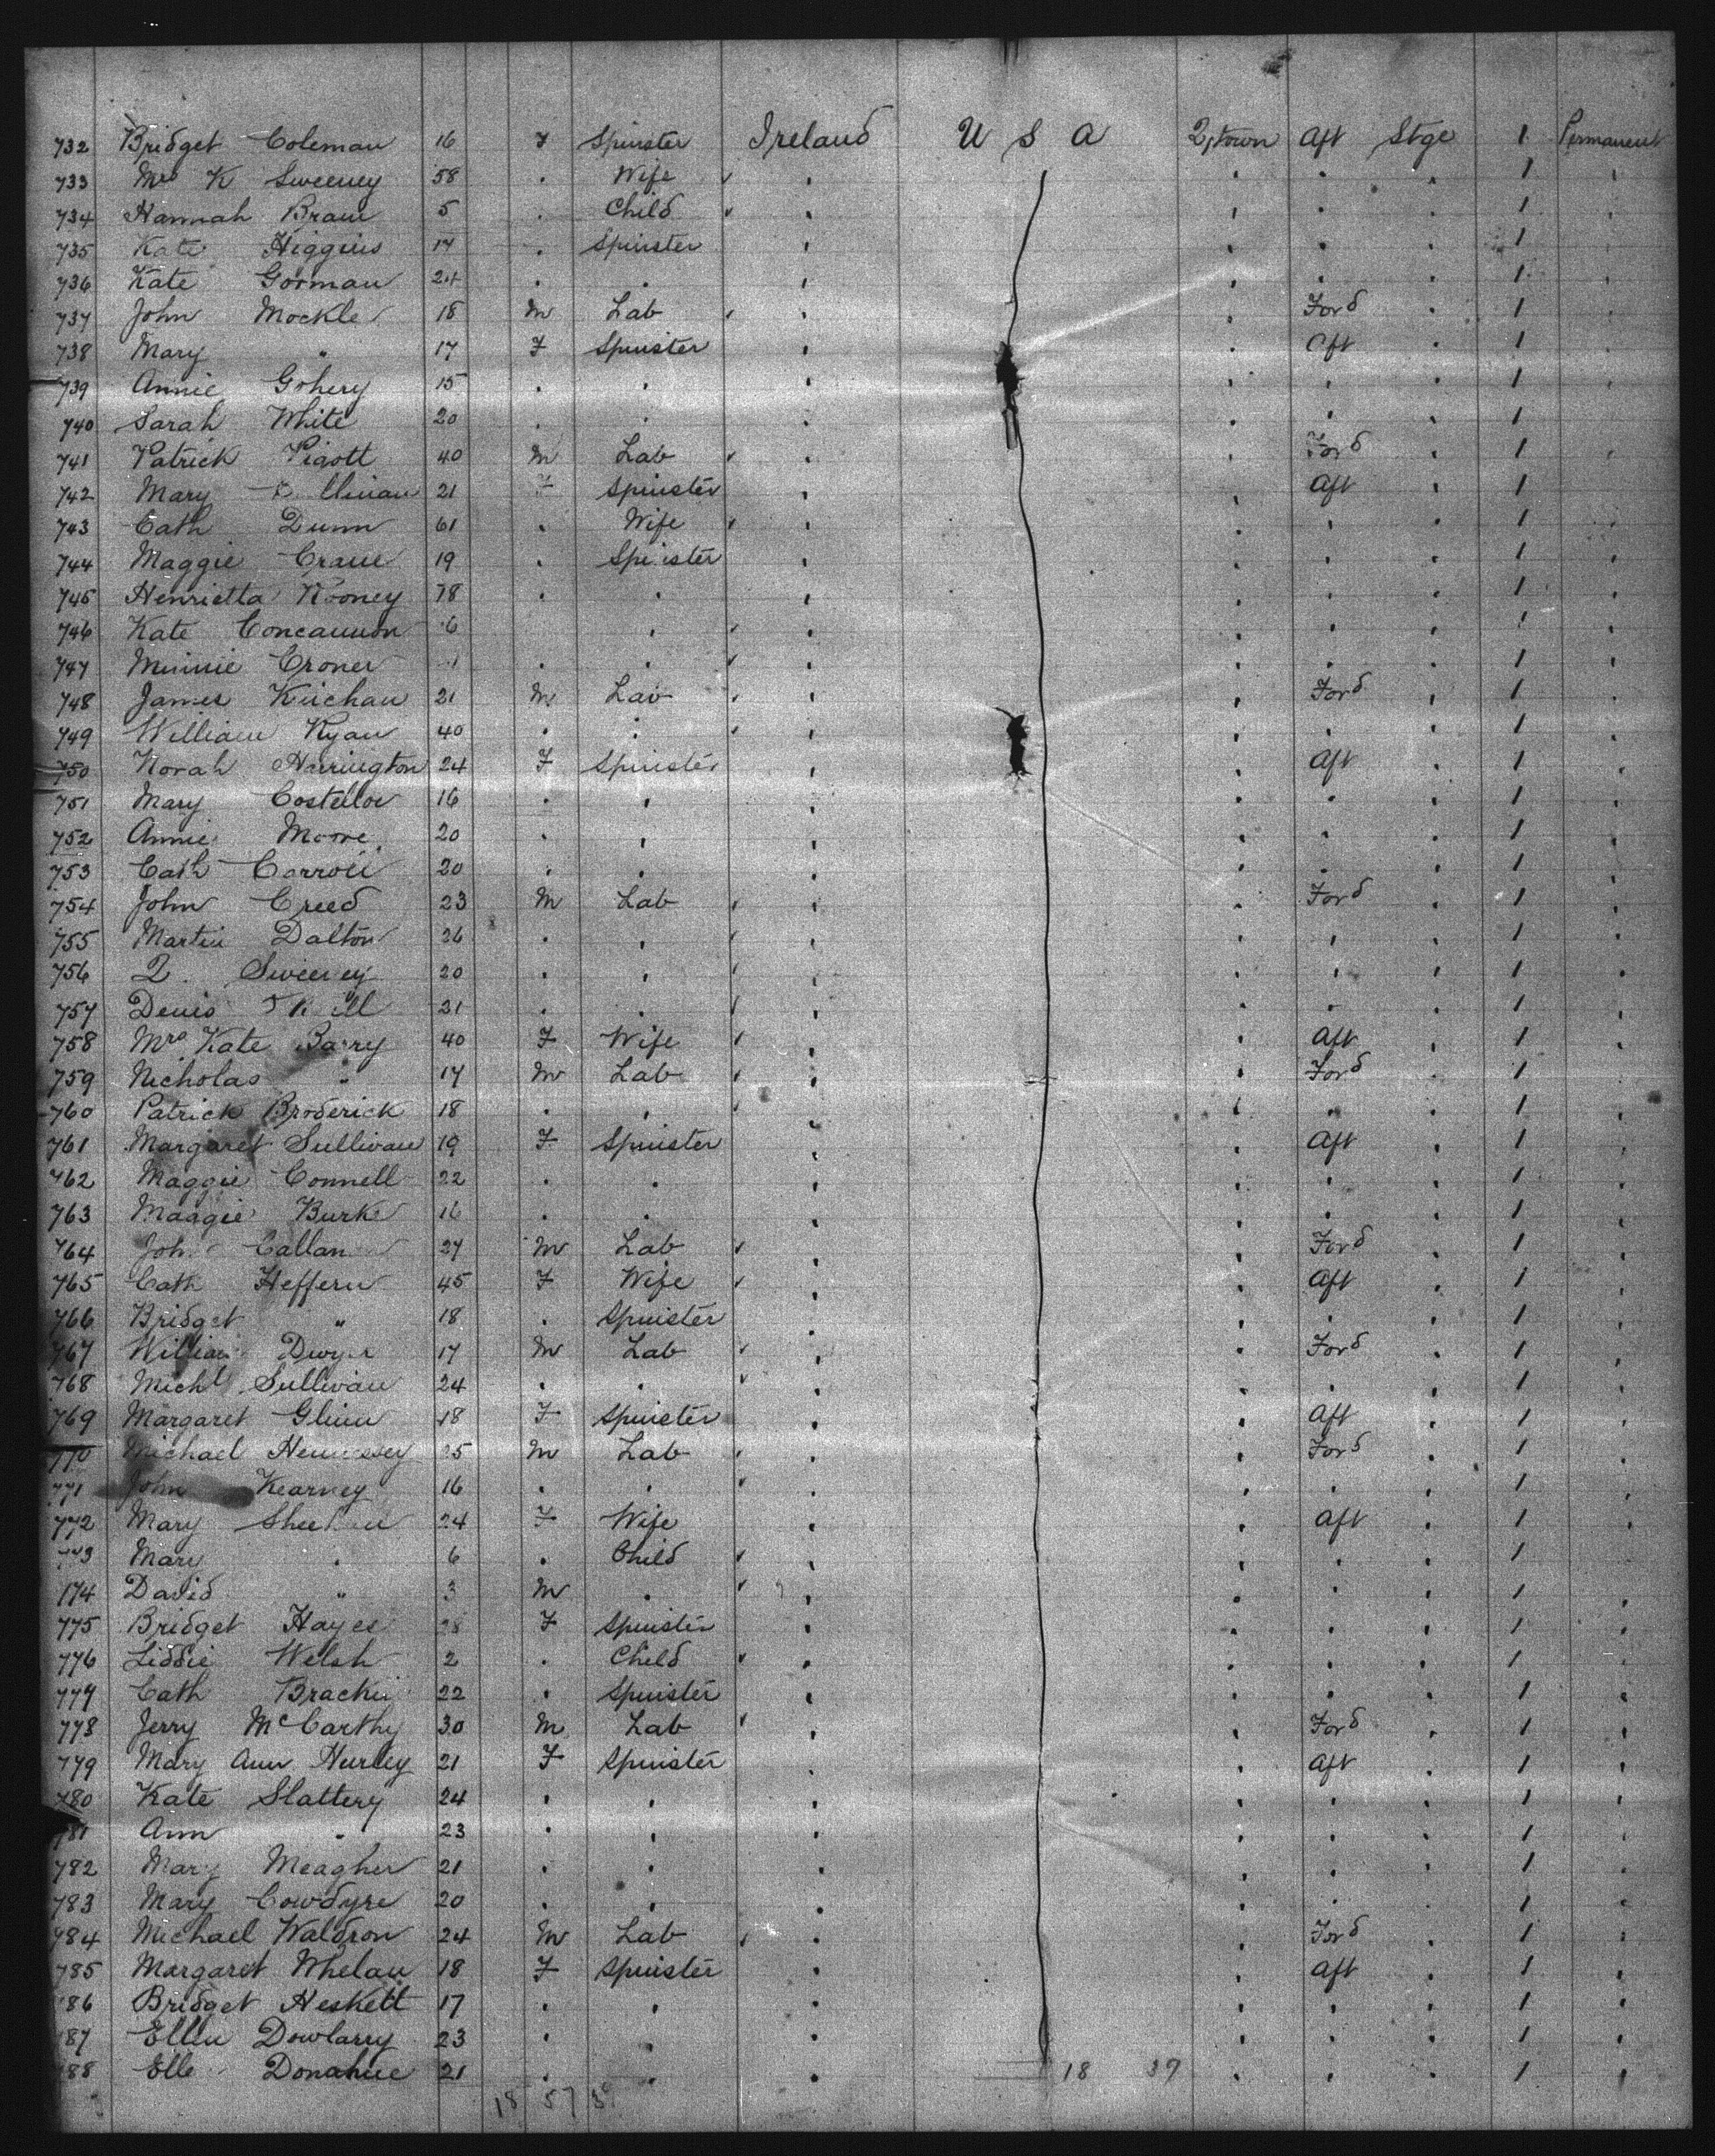 732 Bridget Coleman 16 F Spinster Ireland U S A Q,town Aft Stge 1 Permanent
733 Mrs K Sweeney 58 . Wife . . . . 1 .
734 Hannah 5 . Child . . . . 1 .
735 Kate Higgins 17 . Spinster . . . . 1 .
736 Kate Gorman 24 . . . . . . 1 .
737 John Mockler 18 M Lab . . Ford . 1 .
738 Mary " 17 F Spinster . . Aft . 1 .
739 Annie Gohery 15 . . . . . . 1 .
740 Sarah White 20 . . . . . . 1 .
741 Patrick Pigott 40 M Lab . . Ford . 1 .
742 Mary 21 F Spinster . . Aft . 1 .
743 Cath Dunn 61 . Wife . . . . 1 .
744 Maggie Crane 19 . Spinster . . . . 1 .
745 Henrietta Rooney 78 . . . . . . 1 .
746 Kate Concannon . . . . . 1 .
747 Minnie Croner . . . . . . 1 .
748 James 21 M Lab . . Ford . 1 .
749 William Ryan 40 . . . . . . 1 .
750 Norah Harrington 24 F Spinster . . Aft . 1 .
751 Mary Costelloe 16 . . . . . . 1 .
752 Annie Moore 20 . . . . . . 1 .
753 Cath Carroll 20 . . . . . . 1 .
754 John Creed 23 M Lab . . Ford . 1 .
755 Martin Dalton 26 . . . . . . 1 .
756 Sweeney 20 . . . . . . 1 .
757 Denis 21 . . . . . . 1 .
758 Mrs Kate Barry 40 F Wife . . Aft . 1 .
759 Nicholas " 17 M Lab . . Ford . 1 .
760 Patrick Broderick 18 . . . . . . 1 .
761 Margaret Sullivan 19 F Spinster . . Aft . 1 .
762 Maggie Connell 22 . . . . . . 1 .
763 Maggie Burke 16 . . . . . . 1 .
764 John Callan 27 M Lab . . Ford . 1 .
765 Cath Heffern 45 F Wife . . Aft . 1 .
766 Bridget " 18 . Spinster . . . . 1 .
767 William Dwyer 17 M Lab . . Ford . 1 .
768 Michl Sullivan 24 . . . . . . 1 .
769 Margaret Glinn 18 F Spinster . . Aft . 1 .
770 Michael Hennessey 25 M Lab . . Ford . 1 .
771 John Kearney 16 . . . . . . 1 .
772 Mary Sheehan 24 F Wife . . Aft . 1 .
773 Mary " 6 . Child . . . . 1 .
774 David " 3 M . . . . . 1 .
775 Bridget Hayes 28 F Spinster . . . . 1 .
776 Liddie Welsh 2 . Child . . . . 1 .
777 Cath Brackin 22 . Spinster . . . . 1 .
778 Jerry McCarthy 30 M Lab . . Ford . 1 .
779 Mary Ann Hurley 21 F Spinster . . Aft . 1 .
780 Kate Slattery 24 . . . . . . 1 .
781 Ann " 23 . . . . . . 1 .
782 Mary Meagher 21 . . . . . . 1 .
783 Mary Cowdyre 20 . . . . . . 1 .
784 Michael Waldron 24 M Lab . . Ford . 1 .
785 Margaret Whelan 18 F Spinster . . Aft . 1 .
786 Bridget Heskett 17 . . . . . . 1 .
787 Ellen Dowlarry 23 . . . . . . 1 .
788 Donahue 21 . . . 18 39 . . . 1 .
18 57 39